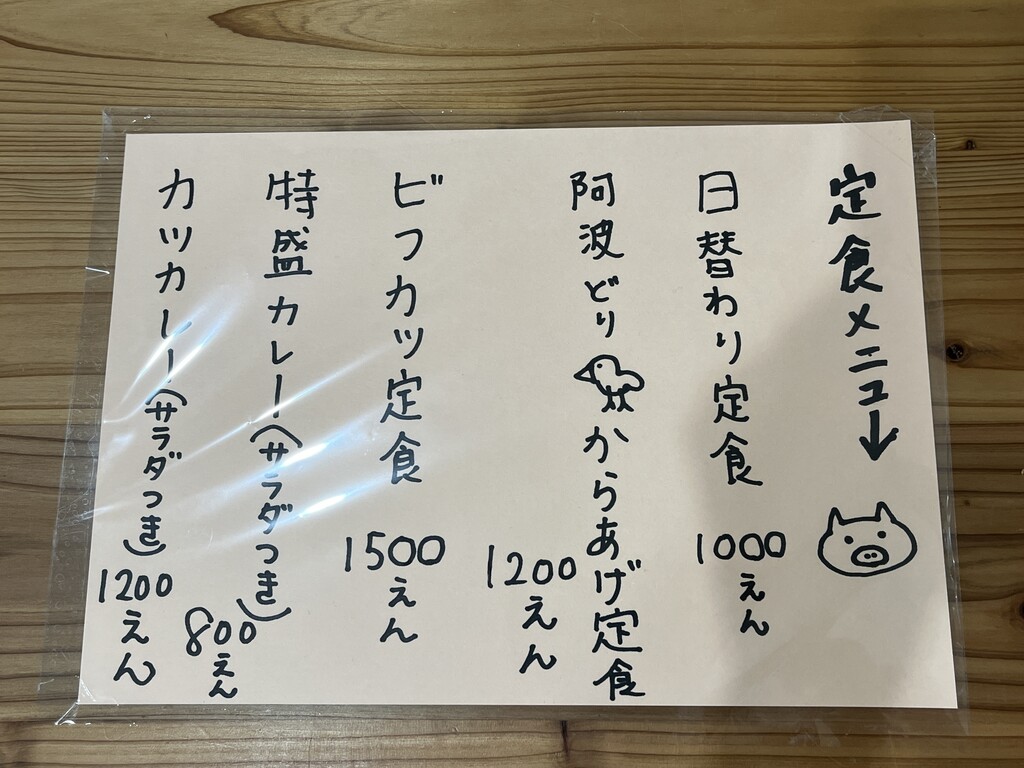 定食メニュー↓
日替わり定食
1000えん
阿波どりからあげ定食
1200えん
ビフカツ定食
1500えん
特盛カレー(サラダつき)
800えん
カツカレー(サラダつき)
1200えん